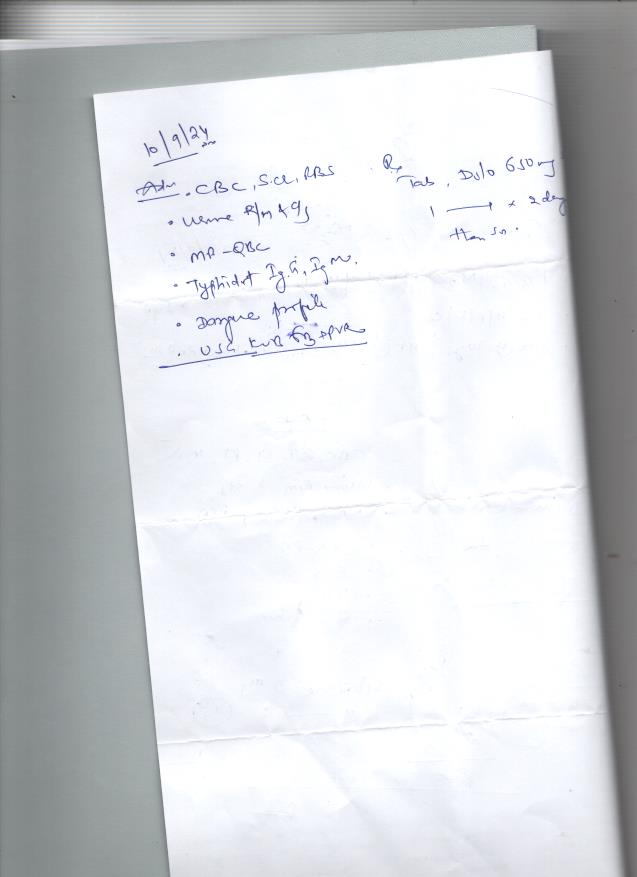 10/9/24
Adv. CBC, S.Cr, RBS
• Urine R/m & C/s
• MP-QBC
• Typhidot IgG, IgM.
• Dengue profile
• USG KUB + PVR
Rx
Tab. Dolo 650mg
1 → x 2 day